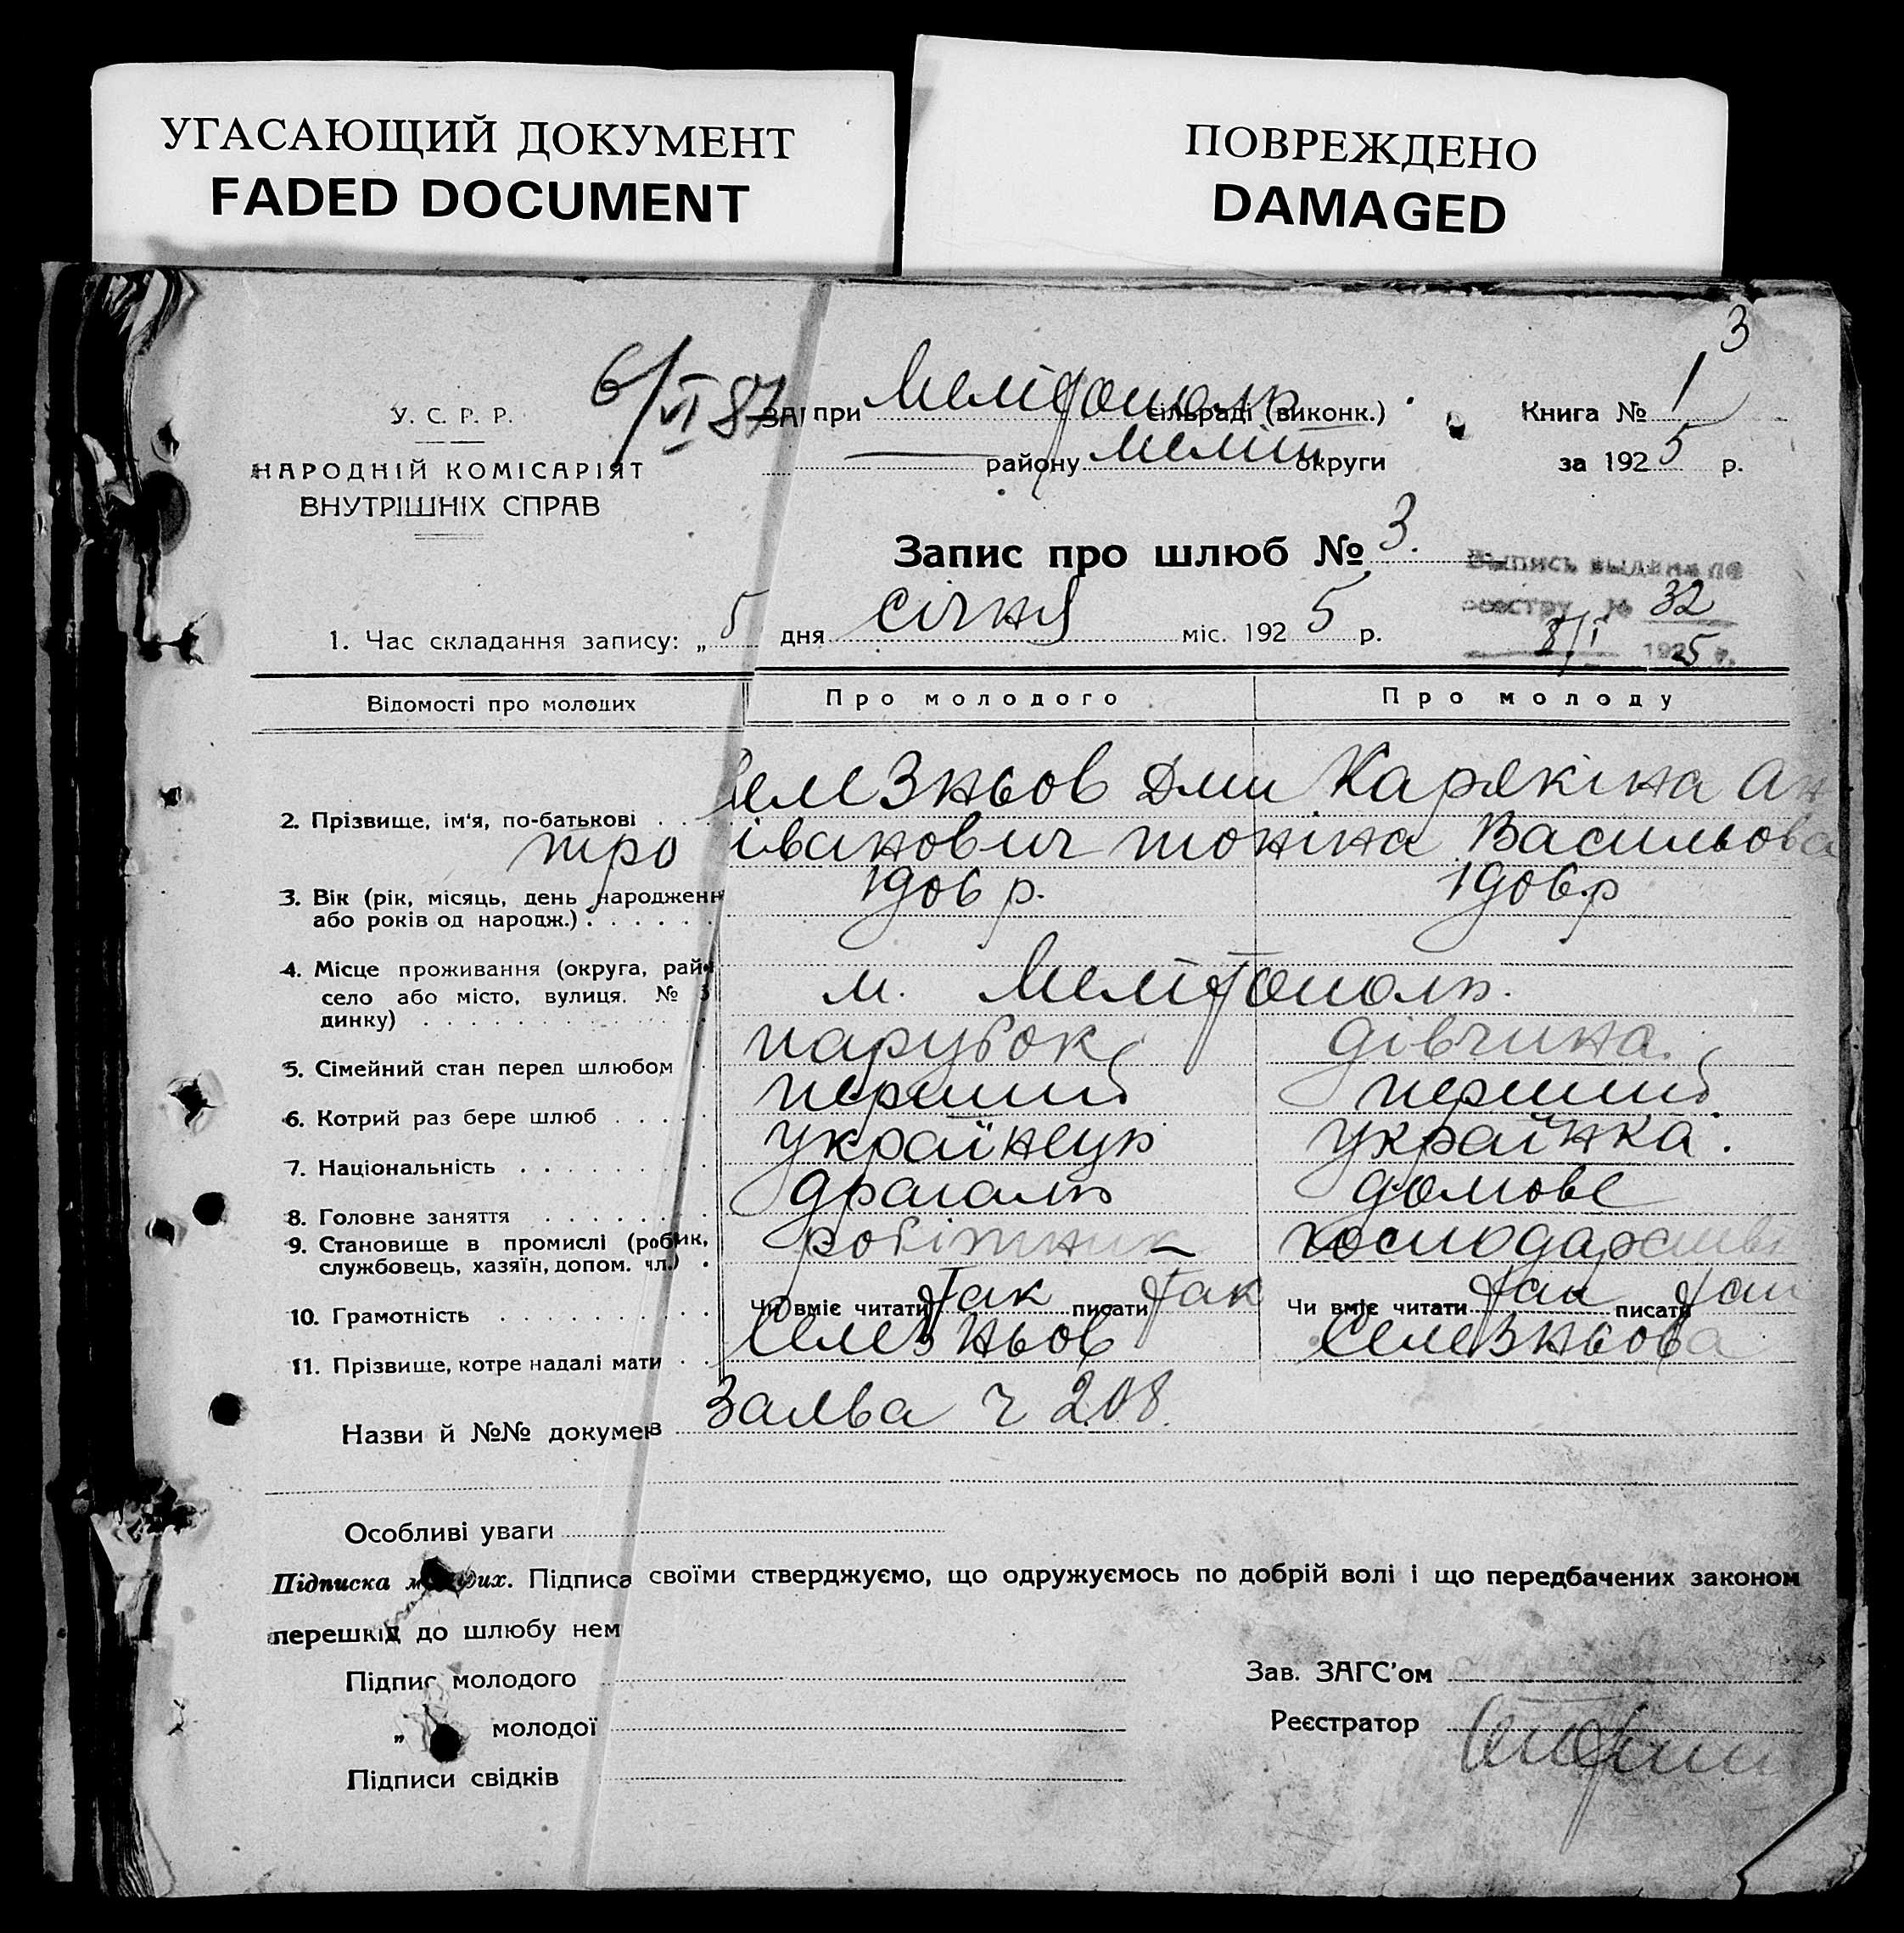 УГАСАЮЩИЙ ДОКУМЕНТ
FADED DOCUMENT
ПОВРЕЖДЕНО
DAMAGED
3
6/VI 87
У. С. Р. Р.
НАРОДНІЙ КОМІСАРІЯТ
ВНУТРІШНІХ СПРАВ
ЗАГ при Мелітополь сільраді (виконк.)
району Меліт округи
Книга № 1
за 1925 р.
Запис про шлюб № 3.
Выпись выдана по
реестру № 32
8/I 1925 г.
1. Час складання запису: „ 5 дня січня міс. 1925 р.
Відомості про молодих Про молодого Про молоду
2. Прізвище, ім'я, по-батькові Селезньов Дми Карякіна Ан
тро Іванович тоніна Васильова
3. Вік (рік, місяць, день народженн 1906 р. 1906 р
або років од народж.)
4. Місце проживання (округа, рай
село або місто, вулиця, № м. Мелітополь.
динку)
5. Сімейний стан перед шлюбом парубок дівчина.
6. Котрий раз бере шлюб перший перший
7. Національність українець українка.
8. Головне заняття драгаль домове
9. Становище в промислі (робік, робітник господарство
службовець, хазяїн, допом. чл.)
10. Грамотність Чи вміє читати так писати так Чи вміє читати так писати так
11. Прізвище, котре надалі мати Селезньов Селезньова
Назви й №№ докумен Заява ч 208.
Особливі уваги
Підписка молодих. Підписа своїми стверджуємо, що одружуємось по добрій волі і що передбачених законом
перешкід до шлюбу нем
Підпис молодого Зав. ЗАГС'ом
„ молодої Реєстратор
Підписи свідків